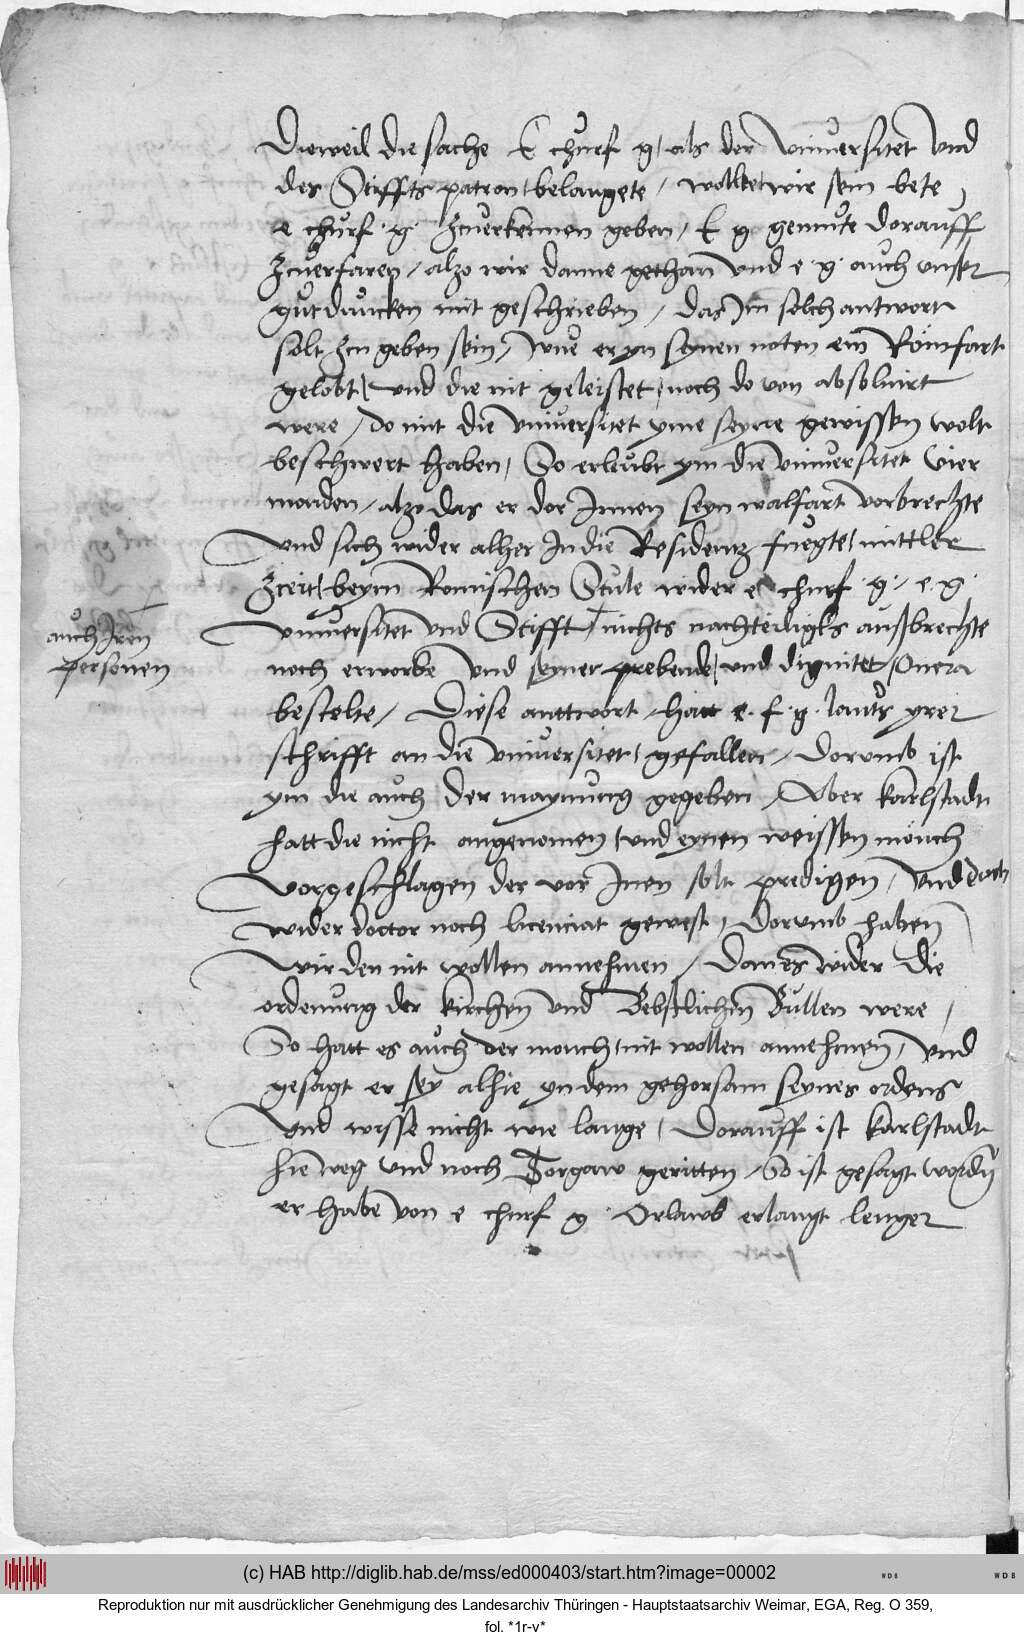 Dieweil die sache E churf g als der Vniuersitet vnd
des Stiffts patron belangete, wolten wir sein bete
e churf. g. zcuerkennen geben, E g gemute dorauff
zcuerfaren, alzo wir danne gethan vnd e. g. auch vnser
gutduncken mit geschrieben, das Im solch antwort
solt zcu geben sein, wue er yn seynen noten ein Romfart
gelobt, vnd die nit geleistet, noch do von absoluirt
were, do mit die vniuersitet yme seyne gewissen wolt
beschwert haben, So erleubt ym die vniuersitet vier
monden, alzo das er dor Innen seyn walfart vorbrechte
vnd sich wider alher In die Residentz fuegte, mittler
zceit, beym Romischen Stule wider e churf. g., e. g.
vniuersitet vnd Stifft, nichts nachteiligks außbrechte
auch Iren
personen
noch erworbe vnd seyner prebende, vnd dignitet, Onera
bestelte, Diese anttwort, hatt e. f. g. lauts yrer
schrifft an die vniuersitet, gefallen, Dorumb ist
ym die auch der maynung gegeben, Aber karlstadt
hatt die nicht angenomen, vnd eynen weissen monch
vorgeschlagen der vor Inen solt predigen, vnd doch
wider doctor noch licenciat gewest, Dorumb haben
wir den nit wollen annehmen, Dan es wider die
ordenung der kirchen vnd Bebstlichen Bullen were,
So hatt es auch der monch, nit wollen annehmen, vnd
gesagt er sey alhie yn dem gehorsam seynes ordens
vnd wisse nicht wie lange, Dorauff ist karlstadt
hin weg vnd noch Torgaw geritten, So ist gesagt worden
er habe von e churf g. Orlawb erlangt lenger
(c) HAB http://diglib.hab.de/mss/ed000403/start.htm?image=00002
WDB
WDB
Reproduktion nur mit ausdrücklicher Genehmigung des Landesarchiv Thüringen - Hauptstaatsarchiv Weimar, EGA, Reg. O 359,
fol. *1r-v*